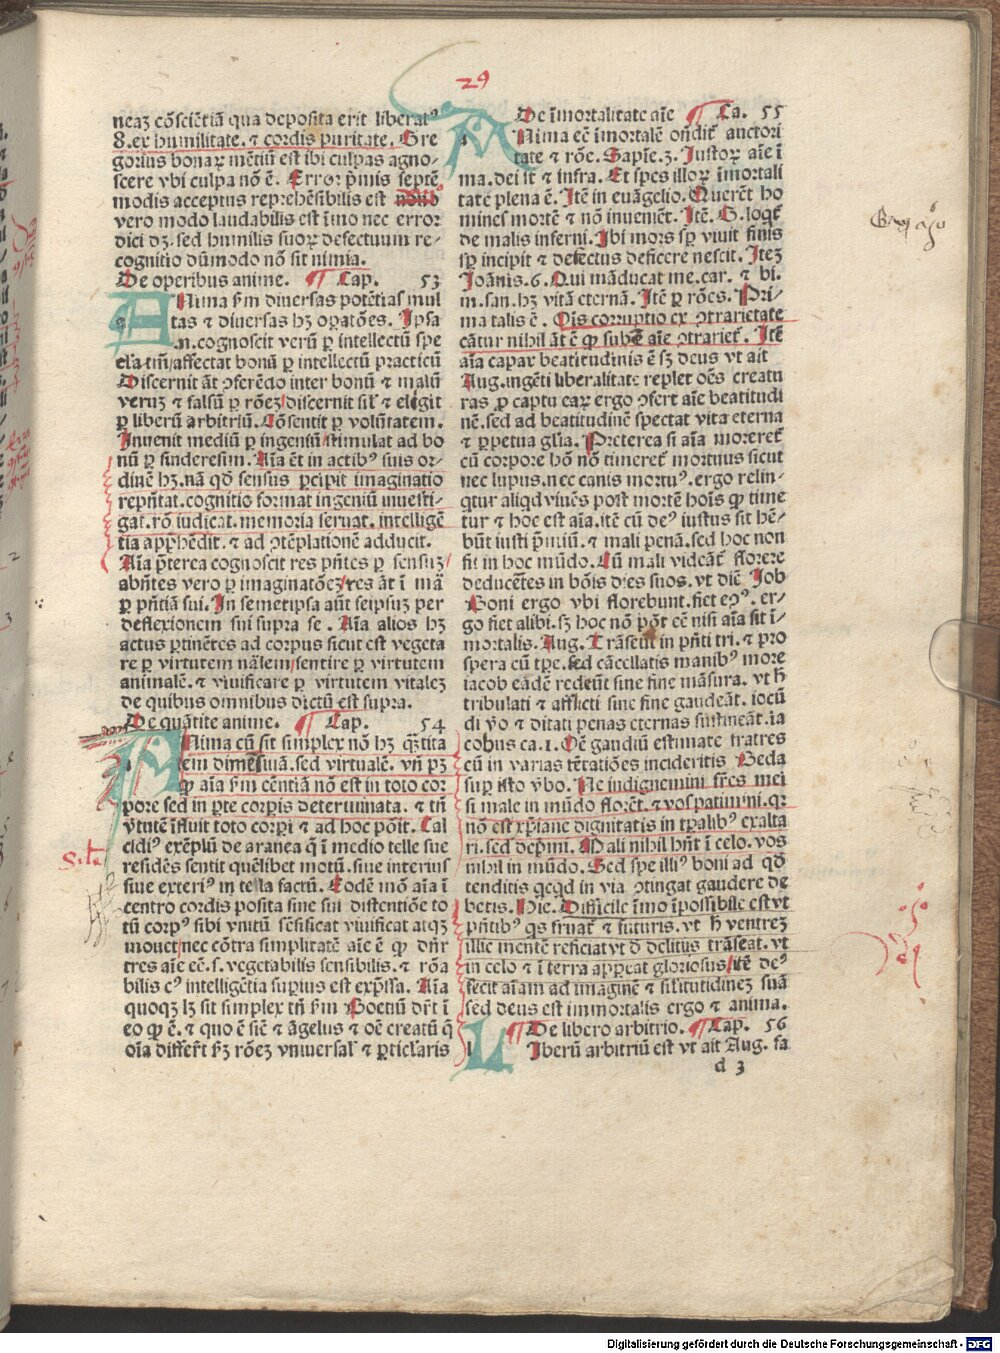 29
neaꝫ cōsciētiā qua deposita erit liberatꝰ
8. ex humilitate. ⁊ cordis puritate. Gre
gorius bonaꝝ mētiū est ibi culpas agno-
scere vbi culpa nō ē. Error p̄mis septē
modis acceptus reprehēsibilis est
vero modo laudabilis est īmo nec error
dici dꝫ. sed humilis suoꝝ defectuum re-
cognitio dūmodo nō sit nimia.
De operibus anime. ¶ Cap. 53
ANima ẜm diuersas potētias mul
tas ⁊ diuersas hꝫ oꝑatōes. Ipsa
.n. cognoscit verū ꝑ intellectū spe
cl'atiū affectat bonū ꝑ intellectū practicū
Discernit āt ꝯferēdo inter bonū ⁊ malū
veruꝫ ⁊ falsū ꝑ rōeꝫ discernit sil' ⁊ eligit
ꝑ liberū arbitriū. Cōsentit ꝑ volūtatem.
Inuenit mediū ꝑ ingeniū stimulat ad bo
nū ꝑ sinderesim. Aīa ēt in actibꝰ suis or-
dinē hꝫ. nā qd̄ sensus ꝑcipit imaginatio
repn̄tat. cognitio format ingeniū inuesti-
gat. rō iudicat. memoria seruat. intelligē
tia app̄hēdit. ⁊ ad ꝯtēplationē adducit.
Aīa p̄terea cognoscit res pn̄tes ꝑ sensuꝫ
abn̄tes vero ꝑ imaginatōeꝫ res āt ī mā
ꝑ pn̄tiā sui. In semetipsa aūt seipsuꝫ per
deflexionem sui supra se. Aīa alios hꝫ
actus ꝑtinētes ad corpus sicut est vegeta
re ꝑ virtutem nālem sentire ꝑ virtutem
animalē. ⁊ viuificare ꝑ virtutem vitaleꝫ
de quibus omnibus dictū est supra.
De quātite anime. ¶ Cap. 54
ANima cū sit simplex nō hꝫ q̄titā
tem dimēsiuā. sed virtualē. vn̄ pꝫ
ꝙ aīa ẜm cēntiā nō est in toto cor
pore sed in ꝑte corꝑis determinata. ⁊ tn̄
v̄tutē īfluit toto corꝑi ⁊ ad hoc pōit. Cal
cidiꝰ exēplū de aranea q̄ ī medio telle sue
residēs sentit quēlibet motū. siue interius
siue exteriꝰ in tella factū. Eodē mō aīa ī
centro cordis posita sine sui distentiōe to
tū corpꝰ sibi vnitū sēsificat viuificat atqꝫ
mouet nec cōtra simplitatē aīe ē ꝙ dn̄r
tres aīe eē. s. vegetabilis sensibilis. ⁊ rōa
bilis cꝰ intelligētia suꝑius est exp̄ssa. Aīa
quoqꝫ lꝫ sit simplex tn̄ ẜm Boetiū dr̄t ī
eo ꝙ ē. ⁊ quo ē siē ⁊ āgelus ⁊ oē creatū q̄
oīa differt ẜꝫ rōeꝫ vniuersal' ⁊ ꝑticl'aris
De īmortalitate aīe ¶ Ca. 55
ANima eē īmortalē on̄dit̄ auctori
tate ⁊ rōe. Sapīe. 3. Iustoꝝ aīe ī
ma. dei st̄ ⁊ infra. Et spes illoꝝ īmortali
tate plena ē. Itē in euāgelio. Querēt ho
mines mortē ⁊ nō inueniēt. Itē. G. loqt̄
de malis inferni. Ibi mors sꝑ viuit finis
sꝑ incipit ⁊ defectus deficere nescit. Iteꝫ
Ioānis. 6. Qui māducat me. car. ⁊ bi.
m. san. hꝫ vitā eternā. Itē ꝑ rōes. Pri-
ma talis ē. Ois corruptio ex ꝯtrarietate
cātur nihil āt ē ꝙ sube aīe ꝯtrariet̄. Itē
aīa capax beatitudinis ē sꝫ deus vt ait
Aug. ingēti liberalitate replet oēs creatu
ras ꝓ captu eaꝝ ergo ꝯfert aīe beatitudi
nē. sed ad beatitudinē spectat vita eterna
⁊ ꝑpetua gl'ia. Preterea si aīa moreret̄
cū corpore hō nō timeret̄ mortuus sicut
nec lupus. nec canis mortuꝰ. ergo relin-
qtur aliqd viuēs post mortē hoīs ꝙ time
tur ⁊ hoc est aīa. itē cū deꝰ iustus sit hē-
būt iusti p̄miū. ⁊ mali penā. sed hoc non
fit in hoc mūdo. Cū mali videāt̄ florere
deducētes in bōis dies suos. vt diē Iob
Boni ergo vbi florebunt. fiet eꝯꝰ. er-
go fiet alibi. sꝫ hoc nō pōt eē nisi aīa sit ī-
mortalis. Aug. Trāseūt in pn̄ti tri. ⁊ pro
spera cū tp̄e. sed cācellatis manibꝰ more
iacob eādē redeūt sine fine māsura. vt hͥ
tribulati ⁊ afflicti sine fine gaudeāt. iocū
di v̄o ⁊ ditati penas eternas sustineāt. ia
cobus ca. 1. Oē gaudiū estimate fratres
cū in varias tētatiōes incideritis Beda
suꝑ isto v̄bo. Ne indignemini fr̄es mei
si male in mūdo florēt. ⁊ vos patimini. qꝛ
nō est xp̄iane dignitatis in tꝑalibꝰ exalta
ri. sed dep̄mi. Mali nihil hn̄t ī celo. vos
nihil in mūdo. Sed spe illiꝰ boni ad qd̄
tenditis qcqd in via ꝯtingat gaudere de
betis. Hie. Difficile īmo īpossibile est vt
pn̄tibꝰ qs fruat̄ ⁊ futuris. vt hͥ ventreꝫ
illic mentē reficiat vt d̄ delitijs trāseat. vt
in celo ⁊ ī terra appeat gloriosus itē deꝰ
fecit aīam ad imaginē ⁊ sil'itutidineꝫ suā
sed deus est immortalis ergo ⁊ anima.
¶ De libero arbitrio. ¶ Cap. 56
LIberū arbitriū est vt ait Aug. fa
d 3
Digitalisierung gefördert durch die Deutsche Forschungsgemeinschaft - DFG